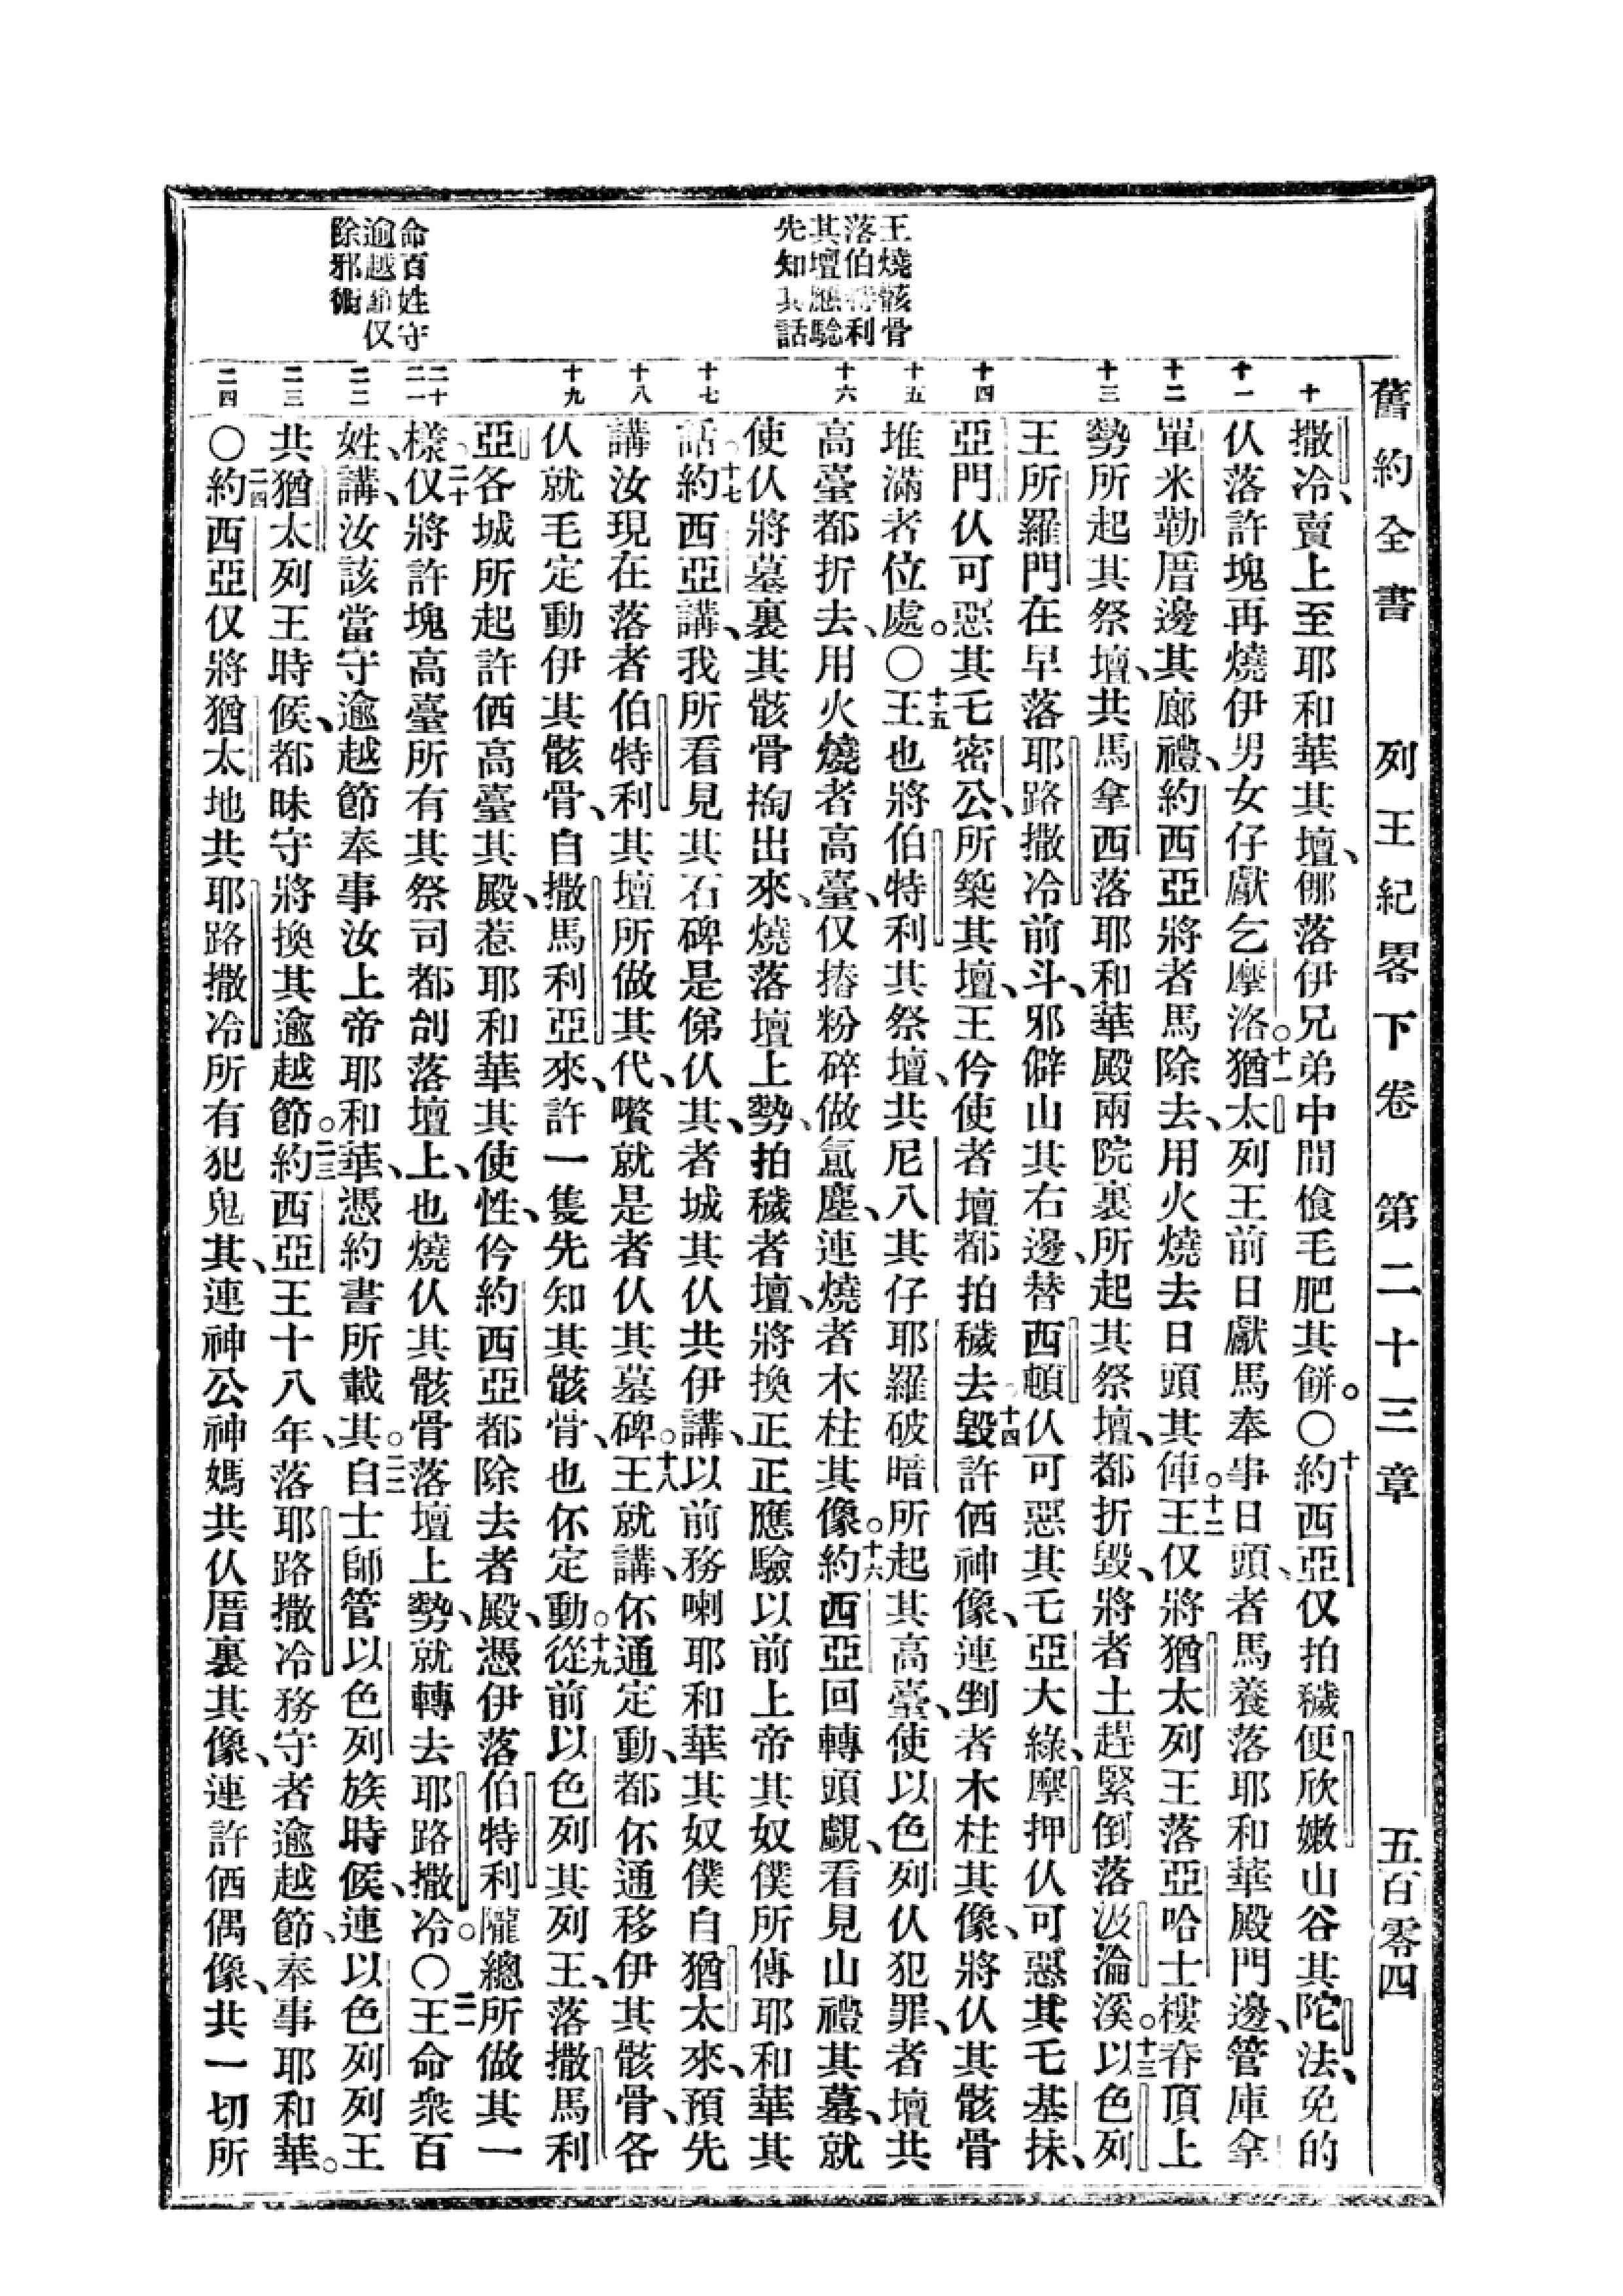 舊約全書 列王紀畧下卷 第二十三章 五百零四
王燒骸骨
落伯特利
其壇應驗
先知其話
命百姓守
逾越節仅
除邪術
十 十一 十二 十三 十四 十五 十六 十七 十八 十九 二十 二一 二二 二三 二四
撒冷、賣上至耶和華其壇、㑚落伊兄弟中間飡毛肥其餅。〇十約西亞仅拍穢便欣嫩山谷其陀法、免的
仈落許塊再燒伊男女仔獻乞摩洛。十一猶太列王前日獻馬奉事日頭、者馬養落耶和華殿門邊、管庫拿
單米勒厝邊其廊禮、約西亞將者馬除去、用火燒去日頭其俥。十二王仅將猶太列王落亞哈士樓脊頂上
勢所起其祭壇、共馬拿西落耶和華殿兩院裏所起其祭壇、都折毀、將者土趕緊倒落汲淪溪。十三以色列
王所羅門在早落耶路撒冷前斗、邪僻山其右邊、替西頓仈可惡其乇亞大綠、摩押仈可惡其乇基抹、
亞門仈可惡其乇密公、所築其壇、王仱使者壇都拍穢去。十四毀許㑚神像、連㓤者木柱其像、將仈其骸骨
堆滿者位處。〇十五王也將伯特利其祭壇、共尼八其仔耶羅破暗所起其高臺、使以色列仈犯罪、者壇共
高臺都折去、用火燒者高臺、仅摏粉碎做氳塵、連燒者木柱其像。十六約西亞回轉頭覷、看見山禮其墓、就
使仈將墓裏其骸骨掏出來、燒落壇上勢、拍穢者壇、將換正正應驗以前上帝其奴僕所傳耶和華其
話。十七約西亞講、我所看見其石碑是俤仈其、者城其仈共伊講、以前務喇耶和華其奴僕自猶太來、預先
講汝現在落者伯特利其壇所做其代、嚽就是者仈其墓碑。十八王就講、伓通定動、都伓通移伊其骸骨、各
仈就毛定動伊其骸骨、自撒馬利亞來、許一隻先知其骸骨、也伓定動。十九從前以色列其列王、落撒馬利
亞各城所起許㑚高臺其殿、惹耶和華其使性、仱約西亞都除去者殿、憑伊落伯特利隴總所做其一
樣。二十仅將許塊高臺所有其祭司都刣落壇上、也燒仈其骸骨落壇上勢、就轉去耶路撒冷。〇二一王命衆百
姓、講、汝該當守逾越節奉事汝上帝耶和華、憑約書所載其。二二自士師管以色列族時候、連以色列列王
共猶太列王時候、都昧守將換其逾越節。二三約西亞王十八年、落耶路撒冷務守者逾越節、奉事耶和華。
〇二四約西亞仅將猶太地共耶路撒冷所有犯鬼其、連神公神媽共仈厝裏其像、連許㑚偶像、共一切所